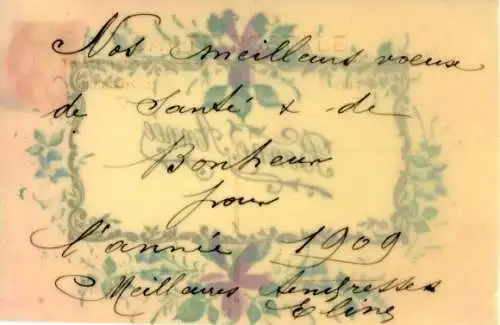 Nos meilleurs voeux
de Santé & de
Bonheur
pour
l'année 1909
Meilleures tendresses
Eline